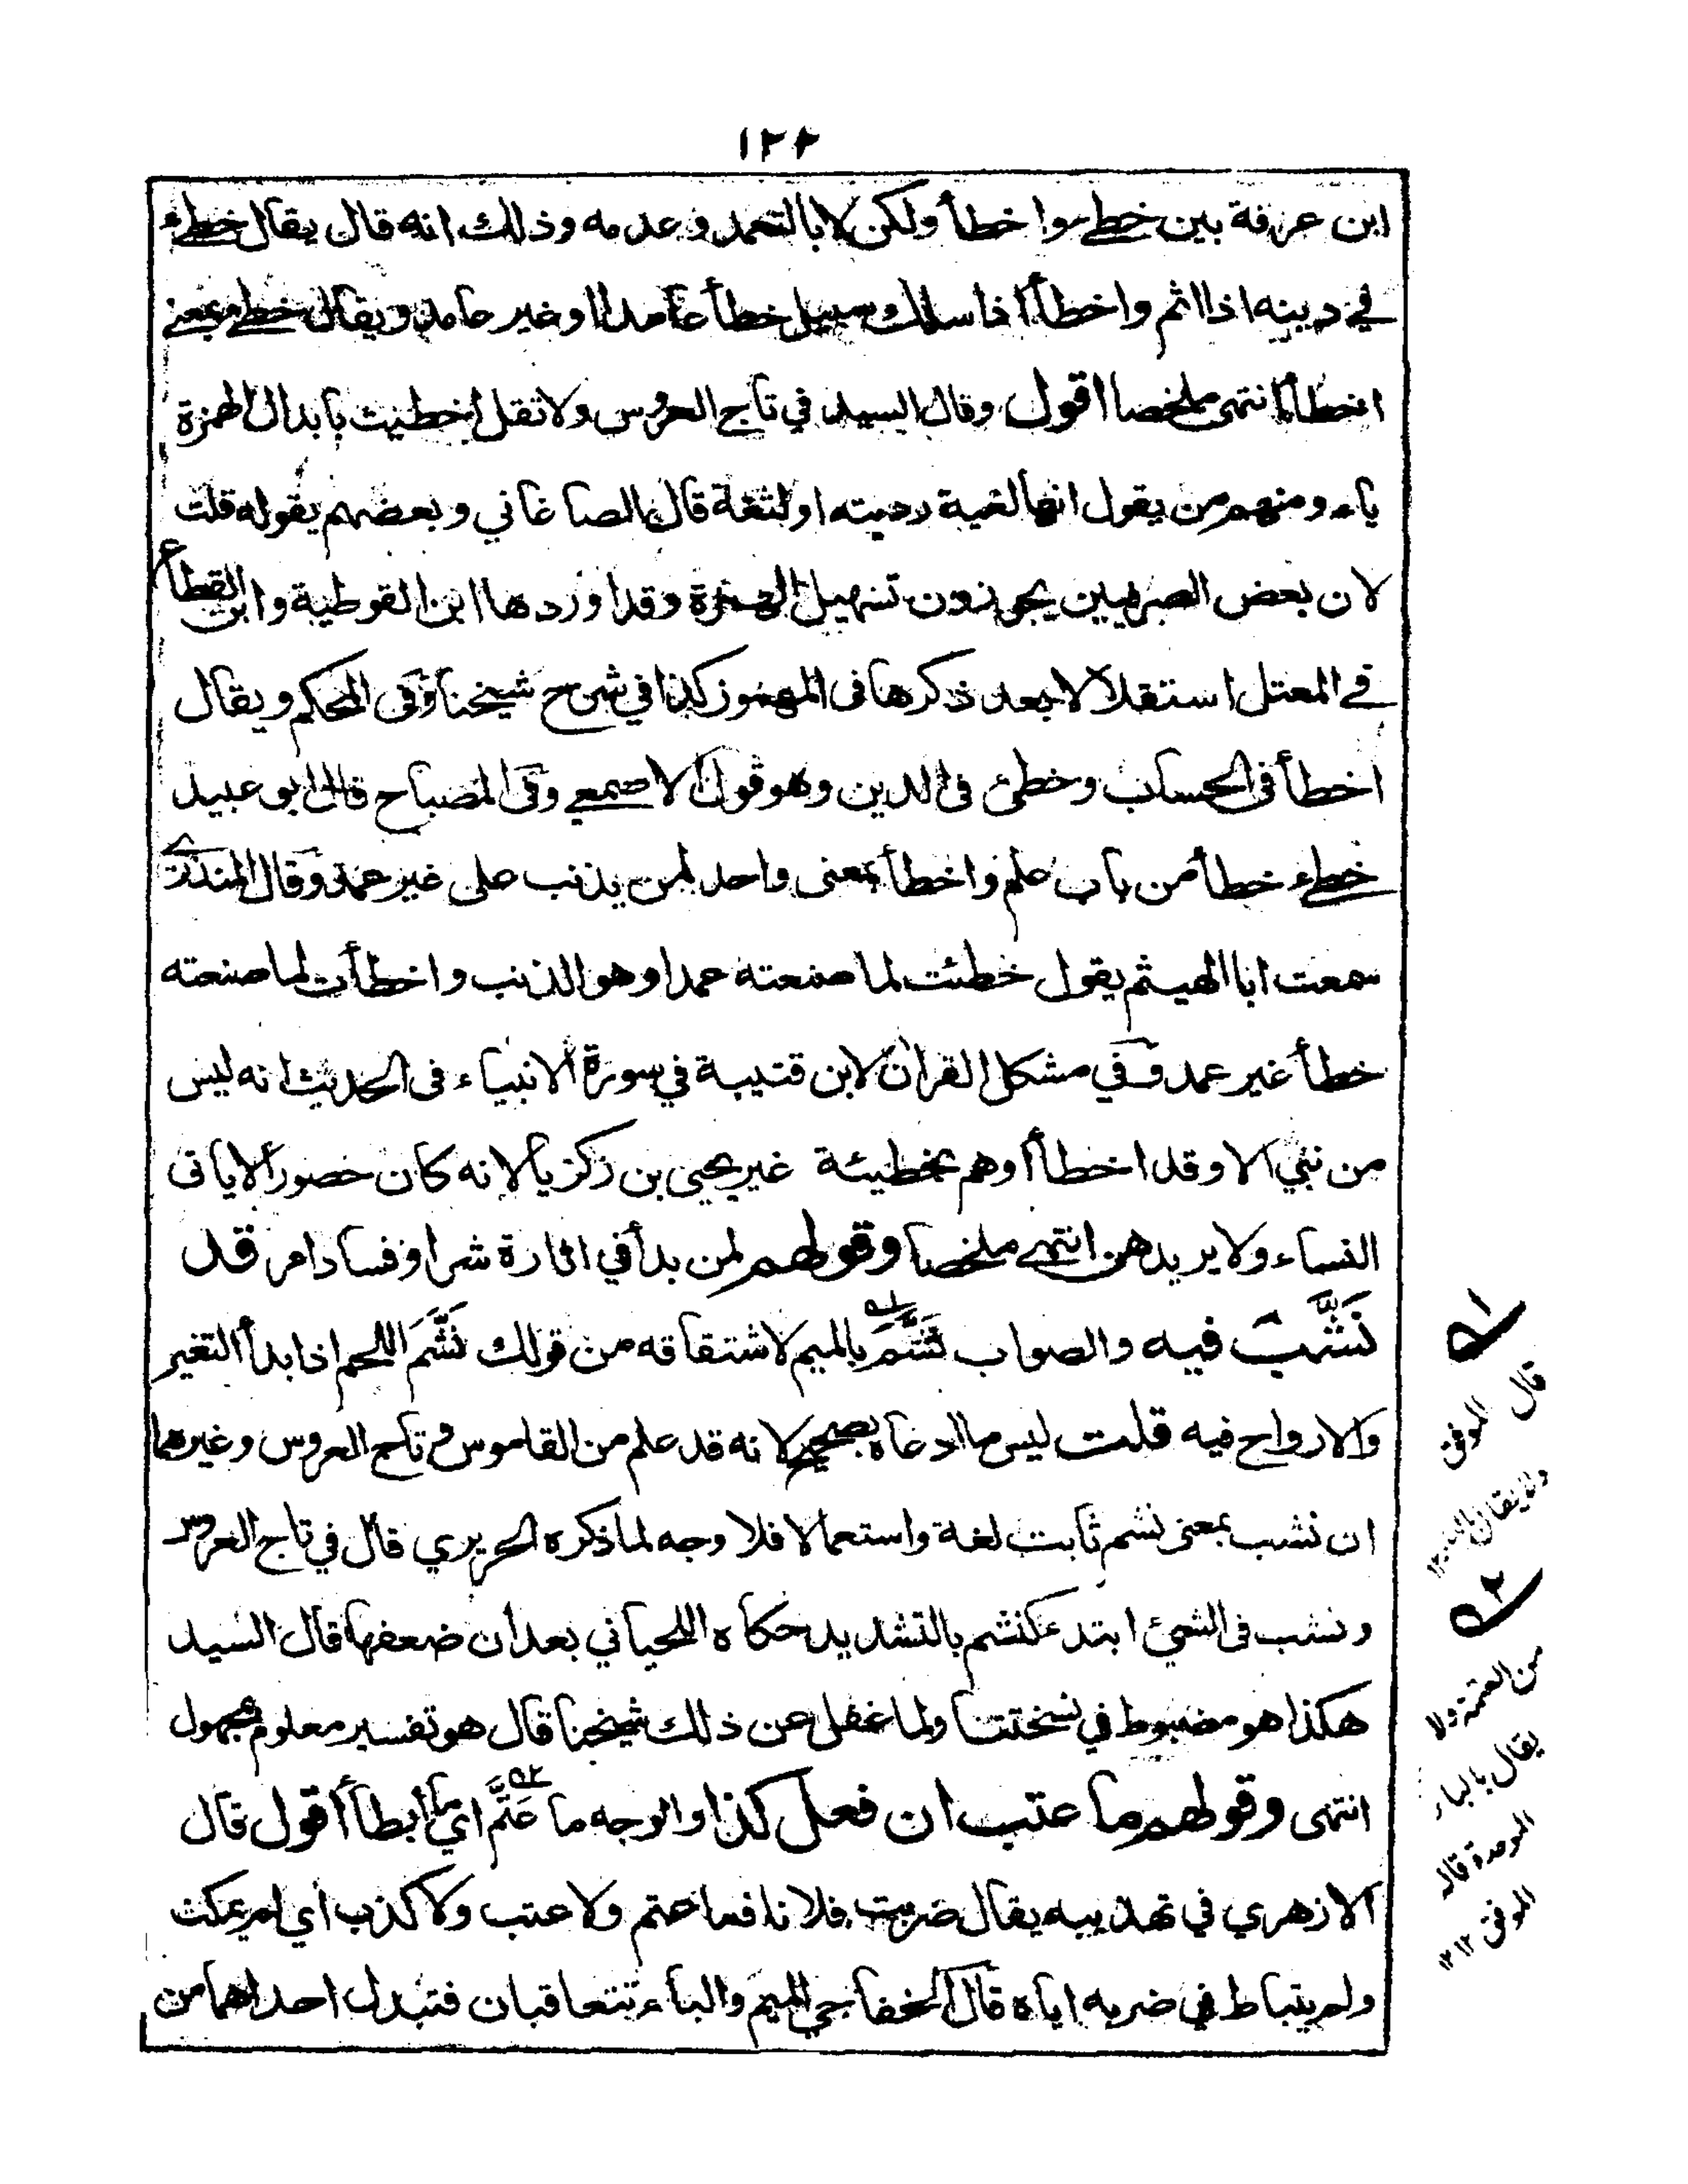 ١٢٢
ابن عرفة بين خطئ واخطأ ولكن لا بالتعمد وعدمه وذلك انه قال يقال خطئ
في دينه اذا اثم واخطأ اذا سلك سبيل خطأ عامدا او غير عامد ويقال خطئ بمعنى
اخطأ انتهى ملخصا اقول وقال السيد في تاج العروس ولا تقل اخطيت بابدال الهمزة
ياء ومنهم من يقول انها لغية رديئة او لثغة قال الصاغاني وبعضهم يقوله قلت
لان بعض الصرفيين يجوزون تسهيل الهمزة وقد اوردها ابن القوطية وابن القطاع
في المعتل استقلالا بعد ذكرها فى المهموز كذا في شرح شيخنا وفى المحكم ويقال
اخطأ فى الحساب وخطئ فى الدين وهو قول الاصمعي وفى المصباح قال ابو عبيد
خطئ خطأ من باب علم واخطأ بمعنى واحد لمن يذنب على غير عمد وقال المنذري
سمعت ابا الهيثم يقول خطئت لما صنعته عمدا وهو الذنب واخطأت لما صنعته
خطأ غير عمد وفي مشكل القران لابن قتيبة في سورة الانبياء فى الحديث انه ليس
من نبي الا وقد اخطأ او هم بخطيئة غير يحيى بن زكريا لانه كان حصورا لا ياتى
النساء ولا يريدهن انتهى ملخصا وقولهم لمن بدأ في اثارة شر او فساد امر قد
نَشَّبَ فيه والصواب نَشَّمَ بالميم لاشتقاقه من قولك نَشَّمَ اللحم اذا بدأ التغير
والارواح فيه قلت ليس ما ادعاه بصحيح لانه قد علم من القاموس و تاج العروس وغيرهما
ان نشب بمعنى نشم ثابت لغة واستعمالا فلا وجه لما ذكره الحريري قال في تاج العروس
ونشب فى الشئ ابتدء كنشم بالتشديد حكاه اللحياني بعد ان ضعفها قال السيد
هكذا هو مضبوط في نسختنا ولما غفل عن ذلك شيخنا قال هو تفسير معلوم بمجهول
انتهى وقولهم ما عتب ان فعل كذا والوجه ما عَتَّمَ اي ما ابطأ اقول قال
الازهري في تهذيبه يقال ضربت فلانا فما عتم ولا عتب ولا كذب اي لم يمكث
ولم يتباط في ضربه اياه قال الخفاجي الميم والباء تتعاقبان فتبدل احداهما من
١
قال الموفق
ولا يقال
٢
من العتمة ولا
يقال بالباء
الموحدة قاله
الموفق ١٢